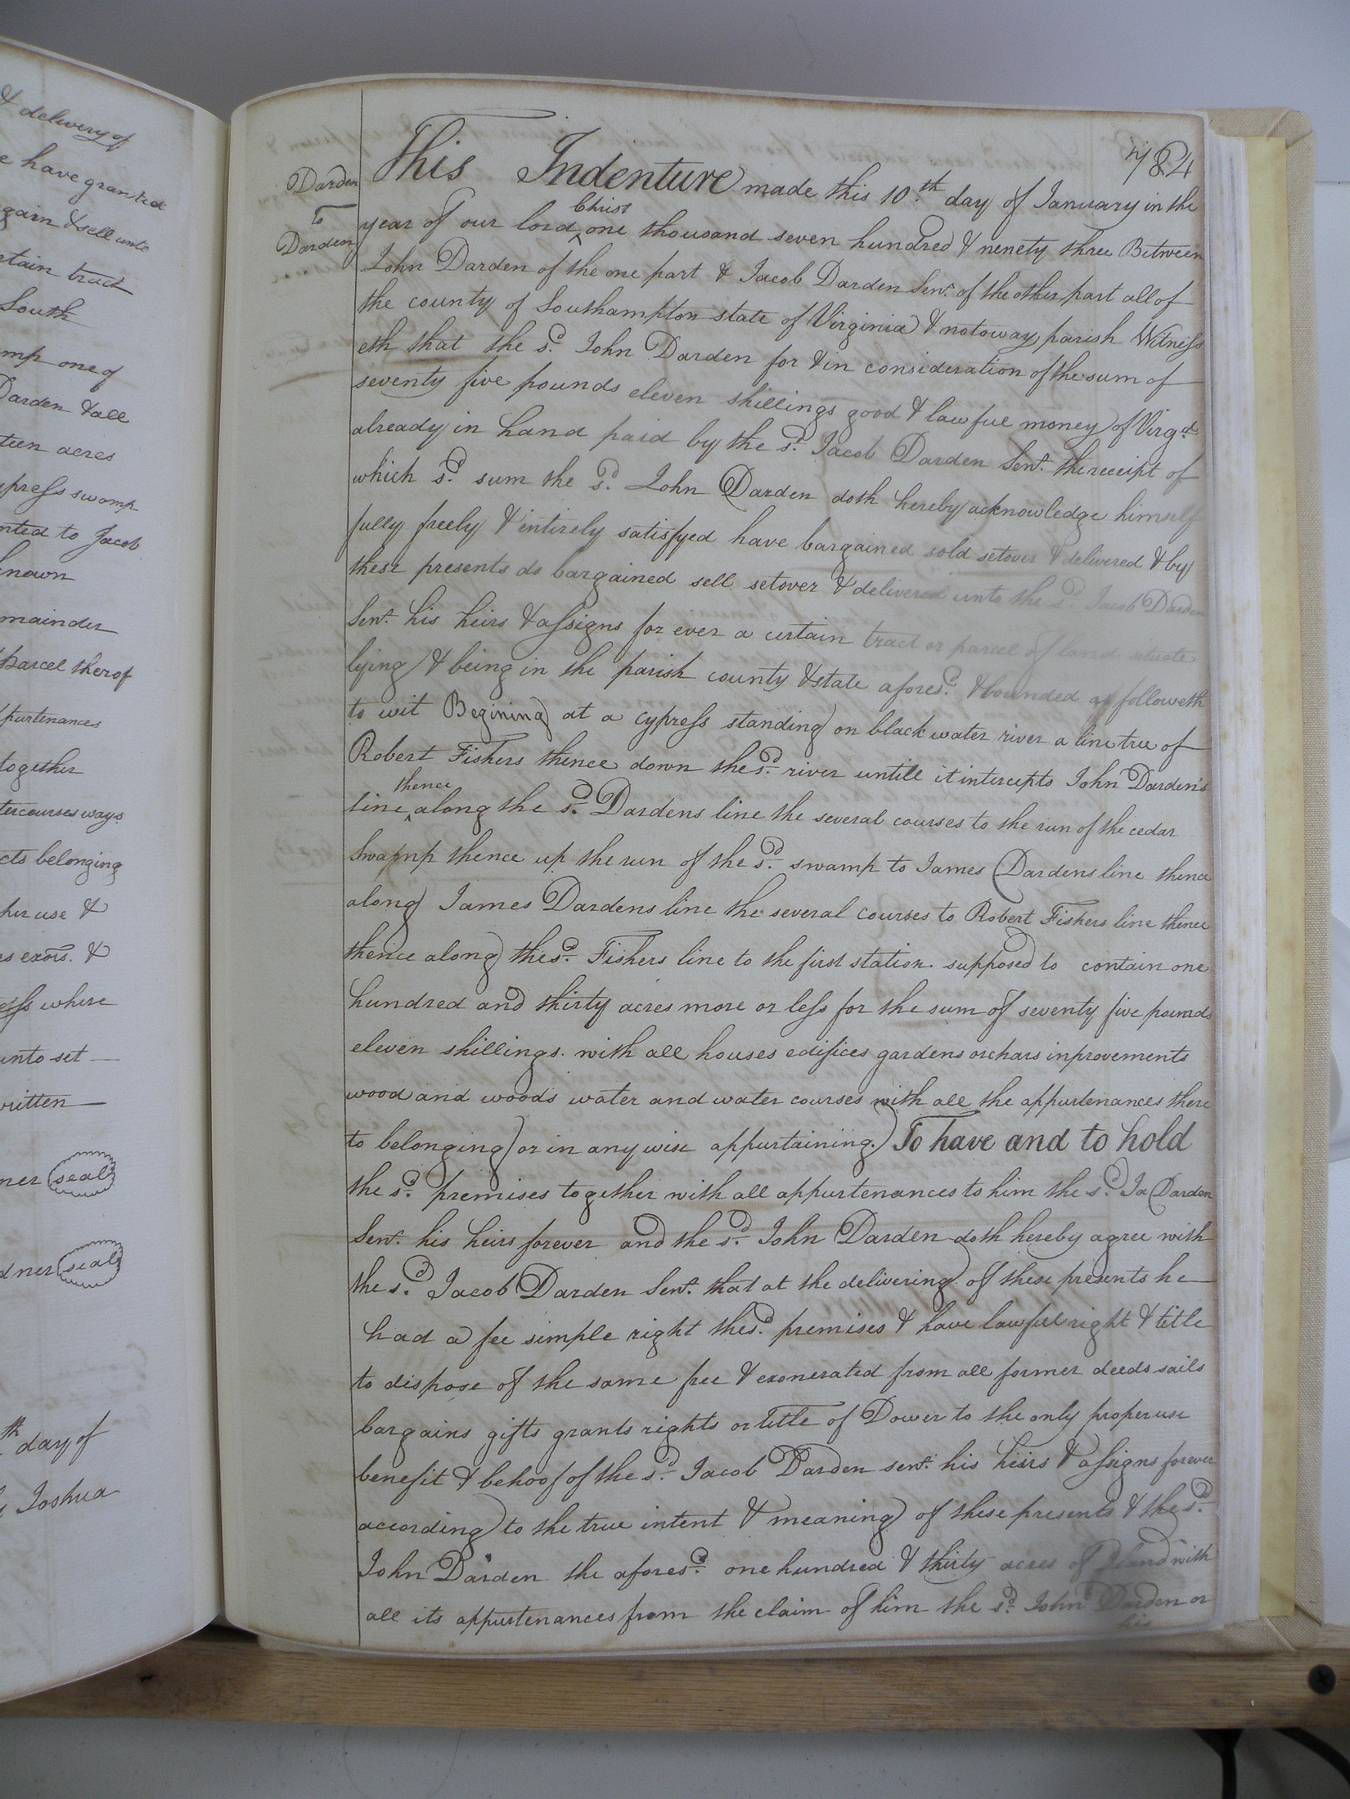 & delivery of
e have granted
gain & sell unto
rtain tract
South
mp one of
Darden & all
teen acres
press swamp
nted to Jacob
known
mainder
parcel therof
purtenances
together
tercourses ways
cts belonging
her use &
es exors. &
ess where
unto set
written
ner seal
dner seal
th day of
Joshua
784
Darden
To
Darden
This Indenture made this 10.th day of January in the
year of our lord Christ one thousand seven hundred & ninety three Between
John Darden of the one part & Jacob Darden Senr. of the other part all of
the county of Southampton state of Virginia & notoway parish Witness
eth that the sd. John Darden for & in consideration of the sum of
seventy five pounds eleven shillings good & lawful money of Virga
already in hand paid by the sd. Jacob Darden Senr. the receipt of
which sd. sum the sd. John Darden doth hereby acknowledge himself
fully freely & entirely satisfyed have bargained sold setover & delivered & by
these presents do bargained sell setover & delivered unto the sd. Jacob Darden
Senr. his heirs & assigns for ever a certain tract or parcel of land situate
lying & being in the parish county & state aforesd. & bounded as followeth
to wit Begining at a cypress standing on black water river a line tree of
Robert Fishers thence down the sd. river untill it intercepts John Darden's
line thence along the sd. Dardens line the several courses to the run of the cedar
Swamp thence up the run of the sd. swamp to James Dardens line thence
along James Dardens line the several courses to Robert Fishers line thence
thence along the sd. Fishers line to the first station. supposed to contain one
hundred and thirty acres more or less for the sum of seventy five pounds
eleven shillings. with all houses edifices gardens orchars inprovements
wood and woods water and water courses with all the appurtenances there
to belonging or in any wise appurtaining. To have and to hold
the sd. premises together with all appurtenances to him the sd. Ja Darden
Senr. his heirs forever and the sd. John Darden doth hereby agree with
the sd. Jacob Darden Senr. that at the delivering of these presents he
had a fee simple right the sd. premises & have lawful right & title
to dispose of the same free & exonerated from all former deeds sails
bargains gifts grants rights or title of Dower to the only proper use
benefit & behoof of the sd. Jacob Darden senr. his heirs & assigns forever
according to the true intent & meaning of these presents & the sd.
John Darden the aforesd. one hundred & thirty acres of land with
all its appurtenances from the claim of him the sd. John Darden or
his